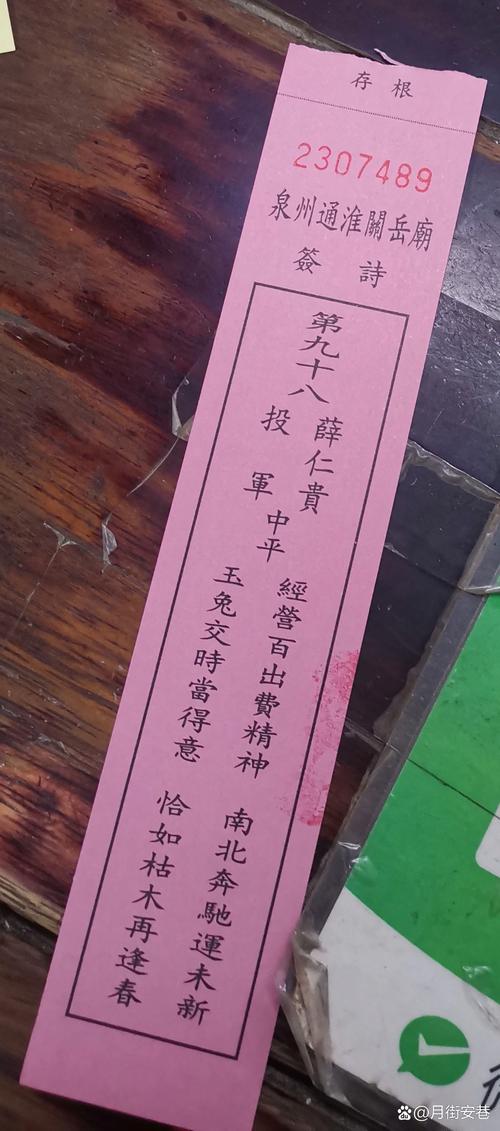 存根
2307489
泉州通淮關岳廟
簽詩
第九十八
薛仁貴
投軍
中平
經營百出費精神
南北奔馳運未新
玉兔交時當得意
恰如枯木再逢春
月街安巷